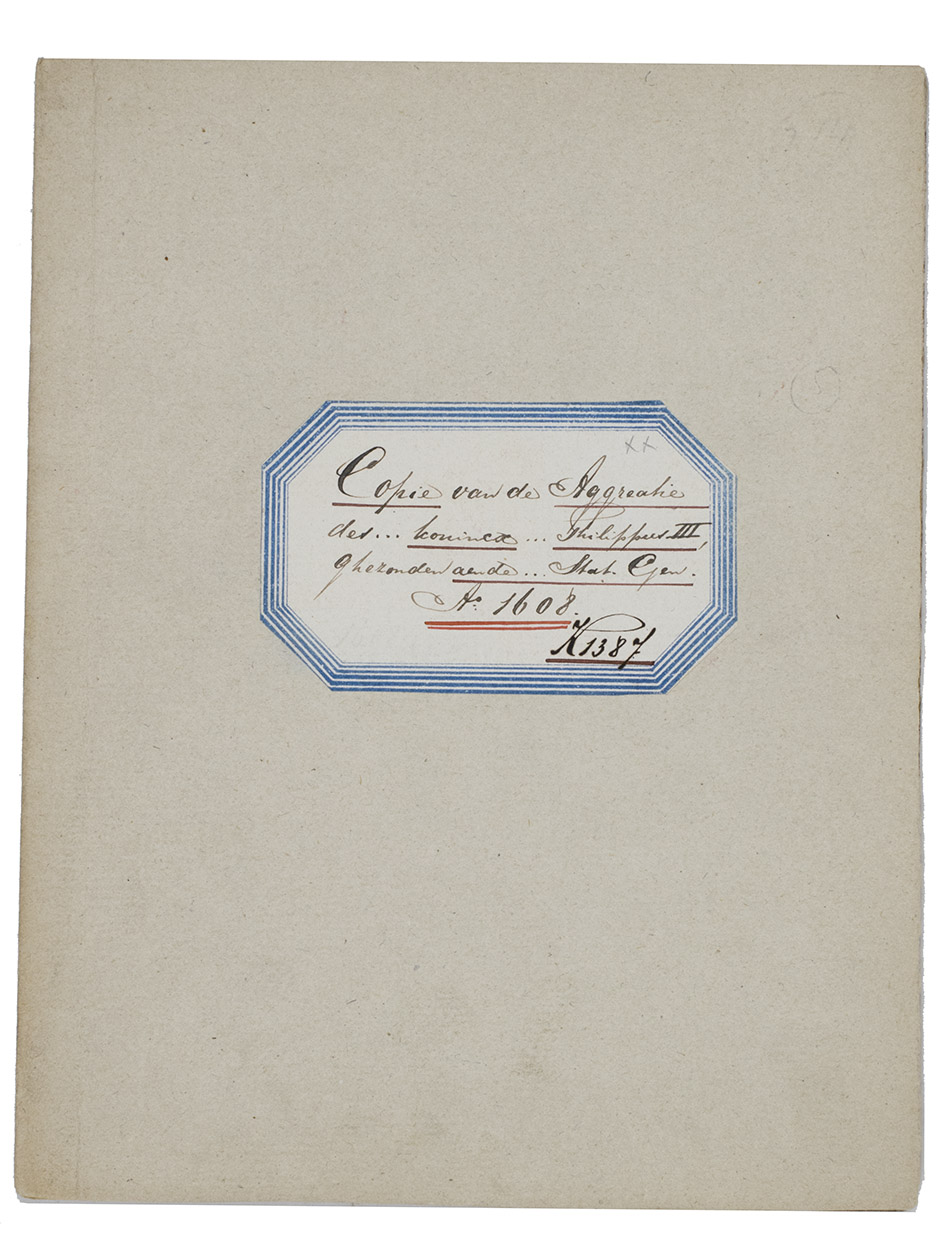 xx
Copie van de Aggreatie
des... konincx ... Philippus III,
ghezonden aende ... Stat. Gen.
Ao. 1608.
K1387